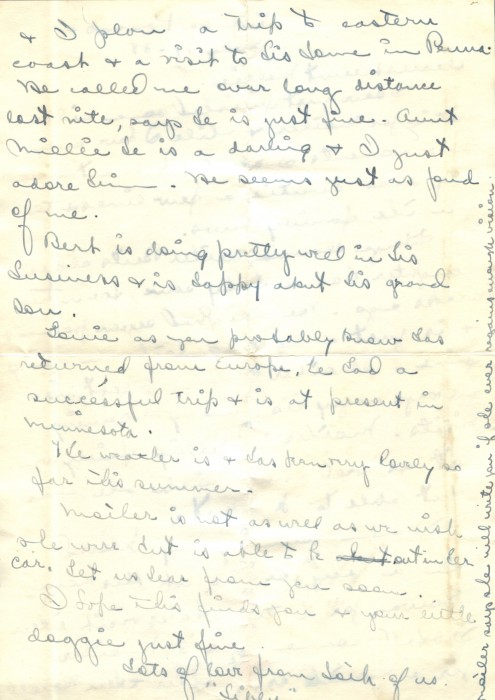 & I plan a trip to eastern
coast & a visit to his home in Penna.
He called me over long distance
last nite, says he is just fine. Aunt
Millie he is a darling & I just
adore him. He seems just as fond
of me.
Bert is doing pretty well in his
business & is happy about his grand
son.
Louie as you probably know has
returned from Europe, he had a
successful trip & is at present in
Minnesota.
The weather is & has been very lovely so
far this summer.
Mother is not as well as we wish
she were but is able to be out in her
car. Let us hear from you soon.
I hope this finds you & your little
doggie just fine.
Lots of love from both of us.
Mother says she will write you if she ever regains enough vision.